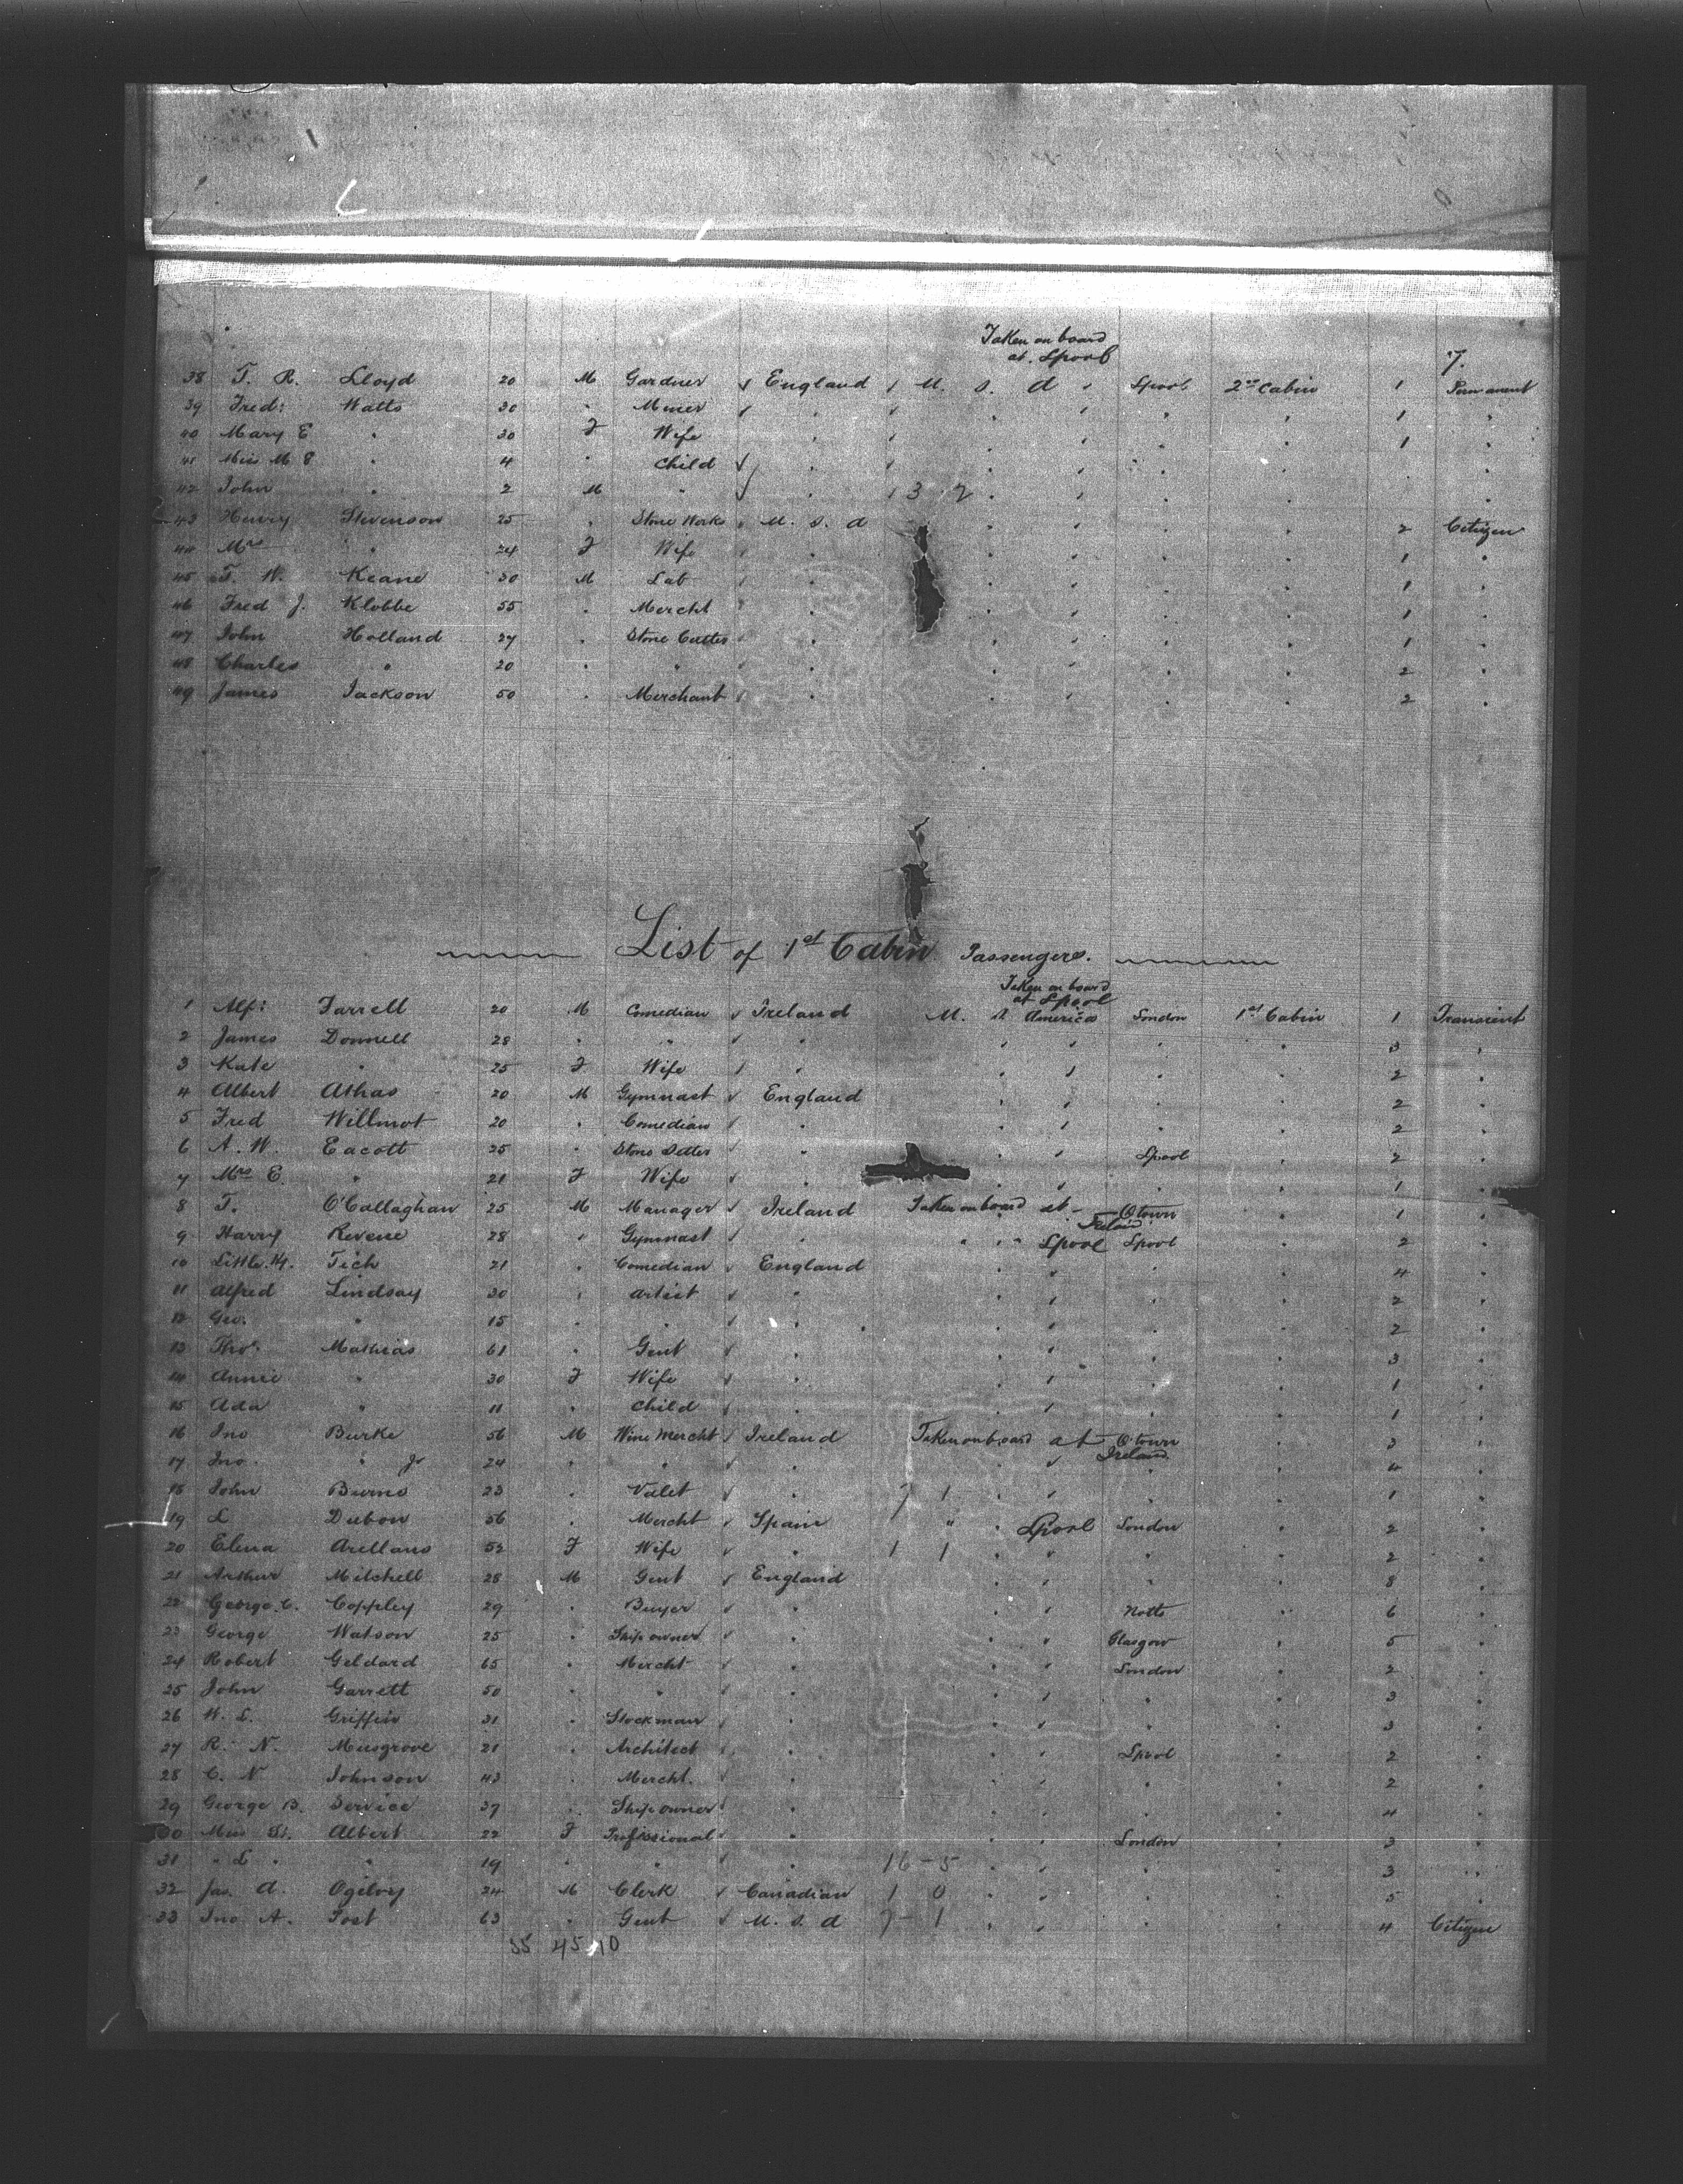 Taken on board
at Lpool
7.
38 T. R. Lloyd 20 M Gardner England U. S. A Lpool 2nd Cabin 1 Permanent
39 Fred: Watts 30 " Miner " " " " " 1 "
40 Mary E " 30 F Wife " " " " " 1 "
41 Miss M E " 4 " Child " " " " "
42 John " 2 M " " 3 2 " " " " "
43 Henry Stevenson 25 " Stone Works U. S. A " " " " 2 Citizen
44 Mrs " 24 F Wife " " " " " 1 "
45 T. W. Keane 30 M Lab " " " " " 1 "
46 Fred J. Klobbe 55 " Mercht " " " " " 1 "
47 John Holland 27 " Stone Cutter " " " " " 1 "
48 Charles " 20 " " " " " " " 2 "
49 James Jackson 50 " Merchant " " " " " 2 "
List of 1st Cabin Passengers.
Taken on board
at Lpool
1 Alf: Farrell 20 M Comedian Ireland U. S. America London 1st Cabin 1 Transient
2 James Donnell 28 " " " " " " " 3 "
3 Kate " 25 F Wife " " " " " 2 "
4 Albert Athas 20 M Gymnast England " " " " 2 "
5 Fred Willmot 20 " Comedian " " " " " 2 "
6 A. W. Eacott 25 " Stone Setter " " " Lpool " 2 "
7 Mrs E. " 21 F Wife " " " " " 1 "
8 T. O'Callaghan 25 M Manager Ireland Taken on board at Qtown Ireland " 1 "
9 Harry Revene 28 " Gymnast " " " " Lpool Lpool " 2 "
10 Little Hy. Tich 21 " Comedian England " " " " 4 "
11 Alfred Lindsay 30 " Artist " " " " " 2 "
12 Geo. " 15 " " " " " " " 2 "
13 Thos. Mathias 61 " Gent " " " " " 3 "
14 Annie " 30 F Wife " " " " " 1 "
15 Ada " 11 " Child " " " " " 1 "
16 Jno Burke 56 M Wine Mercht Ireland Taken on board at Qtown Ireland " 3 "
17 Jno. " Jr 24 " " " " " " " 4 "
18 John Burns 23 " Valet " 7 1 " " " " 1 "
19 L Dubon 56 " Mercht Spain " " Lpool London " 2 "
20 Elena Arellano 52 F Wife " 1 1 " " " " 2 "
21 Arthur Mitchell 28 M Gent England " " " " 8 "
22 George C. Coppley 29 " Buyer " " " Notts " 6 "
23 George Watson 25 " Ship owner " " " Glasgow " 5 "
24 Robert Geldard 65 " Mercht " " " London " 2 "
25 John Garrett 50 " " " " " " " 3 "
26 W. L. Griffin 31 " Stockman " " " " " 3 "
27 R. N. Musgrove 21 " Architect " " " Lpool " 2 "
28 C. N Johnson 43 " Mercht. " " " " " 2 "
29 George B. Service 37 " Ship owner " " " " " 4 "
30 Miss Albert 22 F Professional " " " London " 3 "
31 " L " " 19 " " " 16 - 5 " " " " 3 "
32 Jas. A. Ogilvy 24 M Clerk Canadian 1 0 " " " " 5 "
33 Jno A. Post 63 " Gent U. S. A 7 - 1 " " " " 4 Citizen
55 45 10